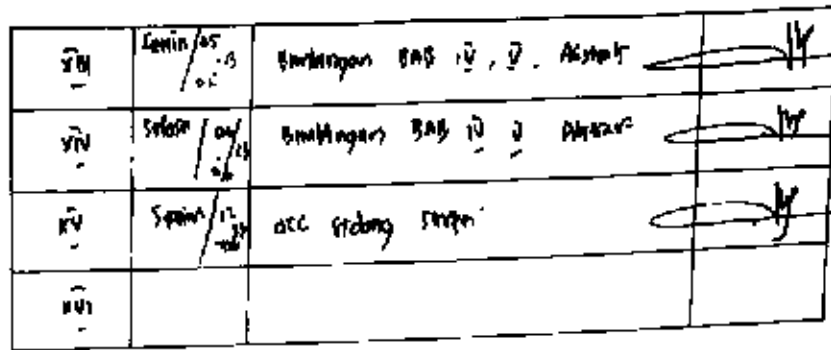 XIII Senin/05 Bimbingan BAB IV, V, Abstrak
XIV Selasa/ Bimbingan BAB IV V Abstrak
XV Senin/12 acc sidang skripsi
XVI